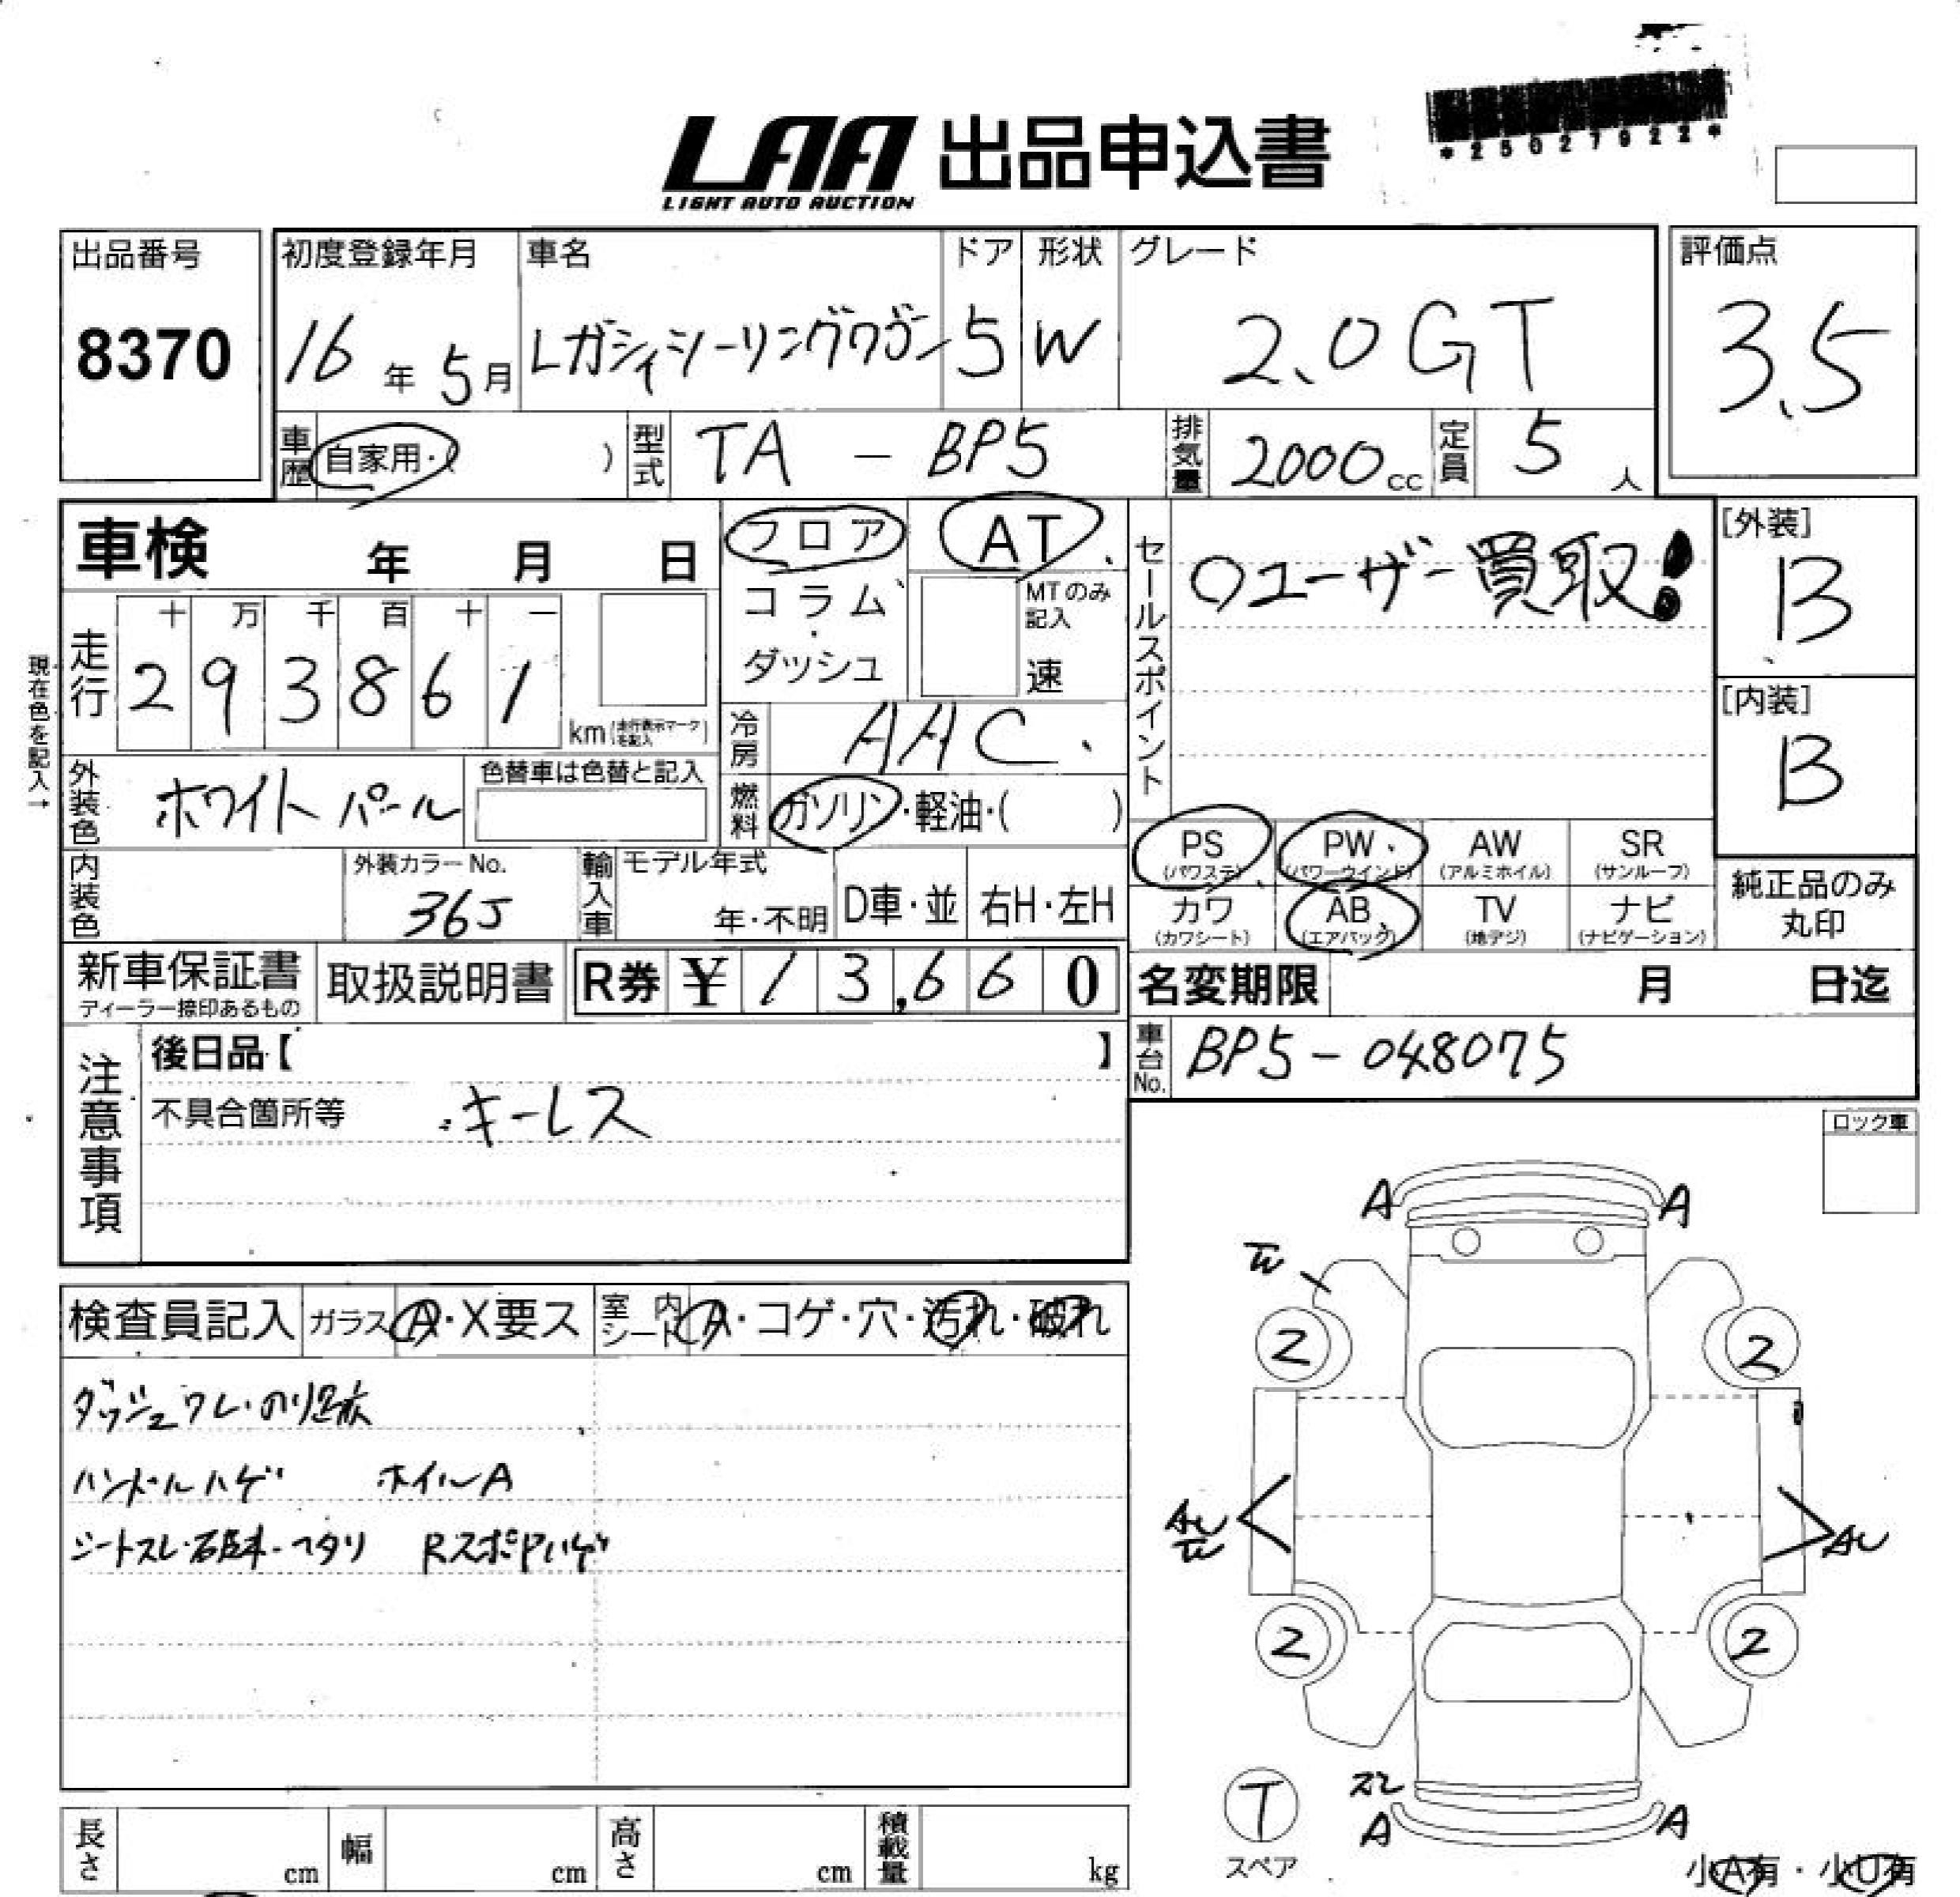 LAA 出品申込書
LIGHT AUTO AUCTION
*25027922*
出品番号
8370
初度登録年月
16年 5月
車名
レガシィツーリングワゴン
ドア
5
形状
W
グレード
2.0GT
評価点
3.5
車歴 自家用・( )
型式 TA - BP5
排気量 2000cc
定員 5人
車検 年 月 日
フロア
コラム
・
ダッシュ
AT
MTのみ
記入
速
セールスポイント
○ユーザー買取!
[外装]
B
[内装]
B
現在色を記入→
走行
十 万 千 百 十 一
2 9 3 8 6 1
km(走行表示マークを記入)
冷房 AAC
外装色 ホワイトパール
色替車は色替と記入
燃料 ガソリン・軽油・( )
PS
(パワステ)
PW
(パワーウインド)
AW
(アルミホイル)
SR
(サンルーフ)
内装色
外装カラーNo.
36J
輸入車
モデル年式
年・不明
D車・並
右H・左H
カワ
(カワシート)
AB
(エアバッグ)
TV
(地デジ)
ナビ
(ナビゲーション)
純正品のみ
丸印
新車保証書
ディーラー捺印あるもの
取扱説明書
R券 ¥13,660
名変期限 月 日迄
注意事項
後日品【 】
車台No. BP5-048075
不具合箇所等 ・キーレス
ロック車
A A
W
検査員記入
ガラス A・X要ス
室内シート A・コゲ・穴・汚れ・破れ
2 2
ダッシュワレ・のり跡
ハンドルハゲ ホイルA
シートスレ・破れ・ヘタリ RスポPハゲ
AU
W
AU
2 2
T
スペア
スレ
A A
小A有・小U有
長さ cm
幅 cm
高さ cm
積載量 kg